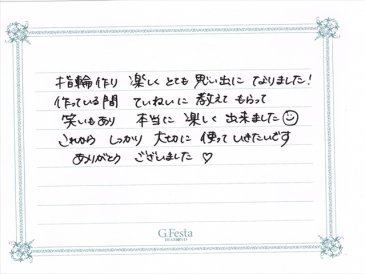 指輪作り 楽しく とても 思い出に なりました!
作っている間 ていねいに 教えて もらって
笑いもあり 本当に 楽しく 出来ました☺
これから しっかり 大切に 使って いきたいです
ありがとう ございました ♡
G.Festa
DIAMOND